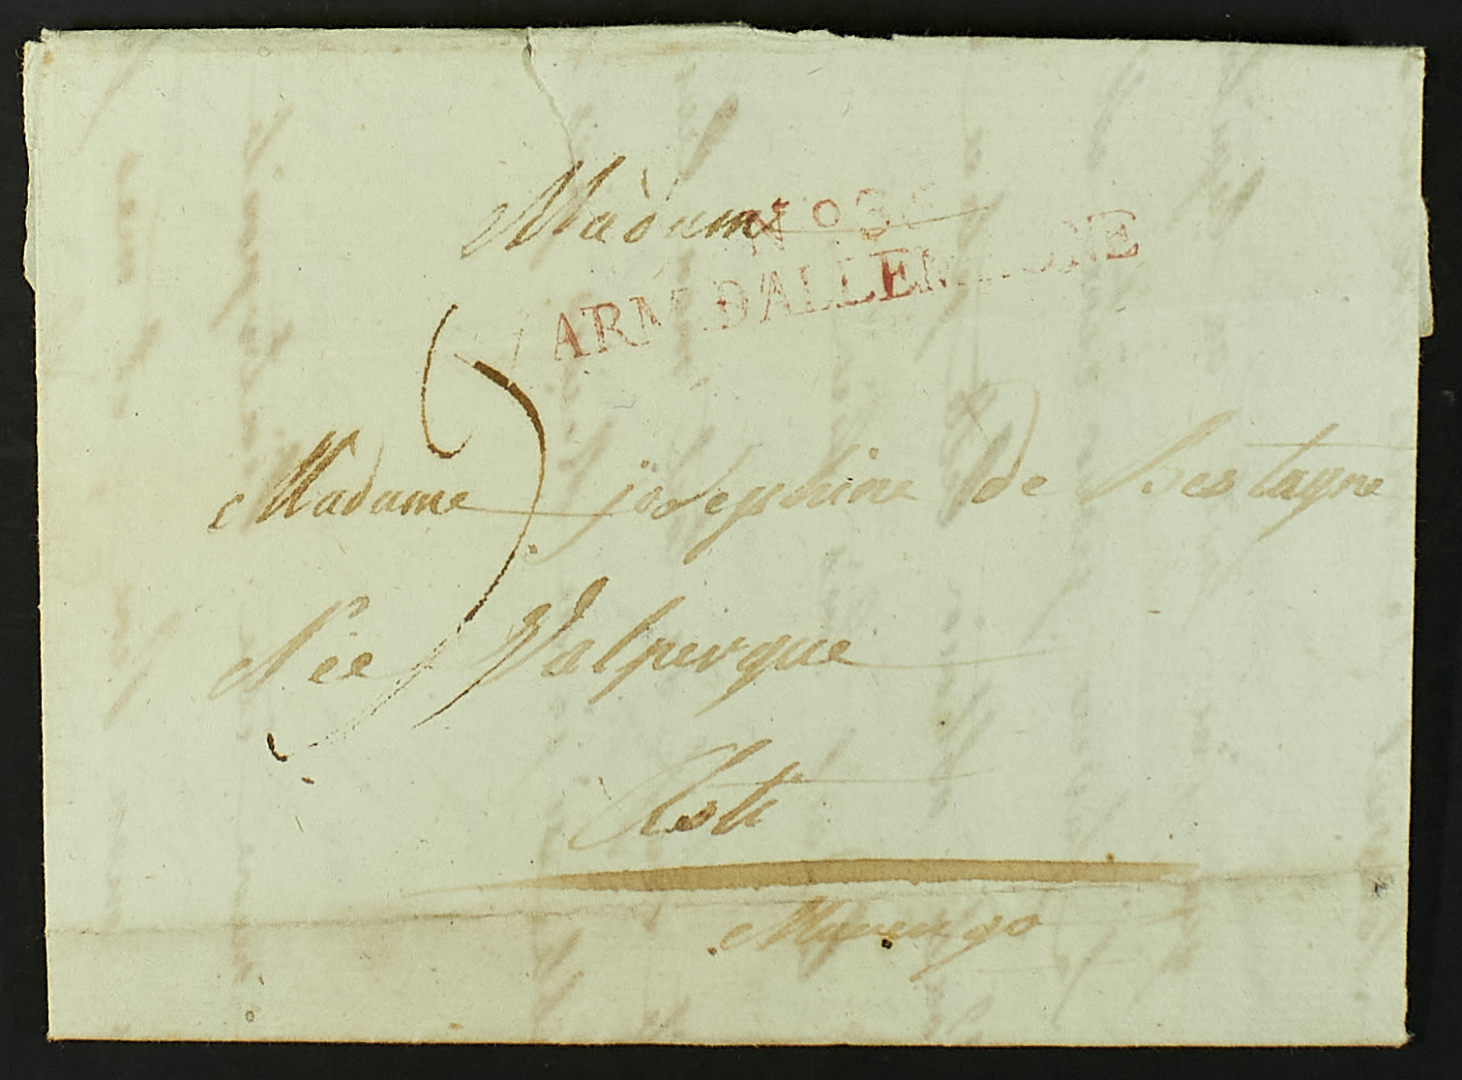 Madame
N° 3
ARM. D'ALLEMAGNE
Madame josephine De
Née Valpergue
Asti
Marengo